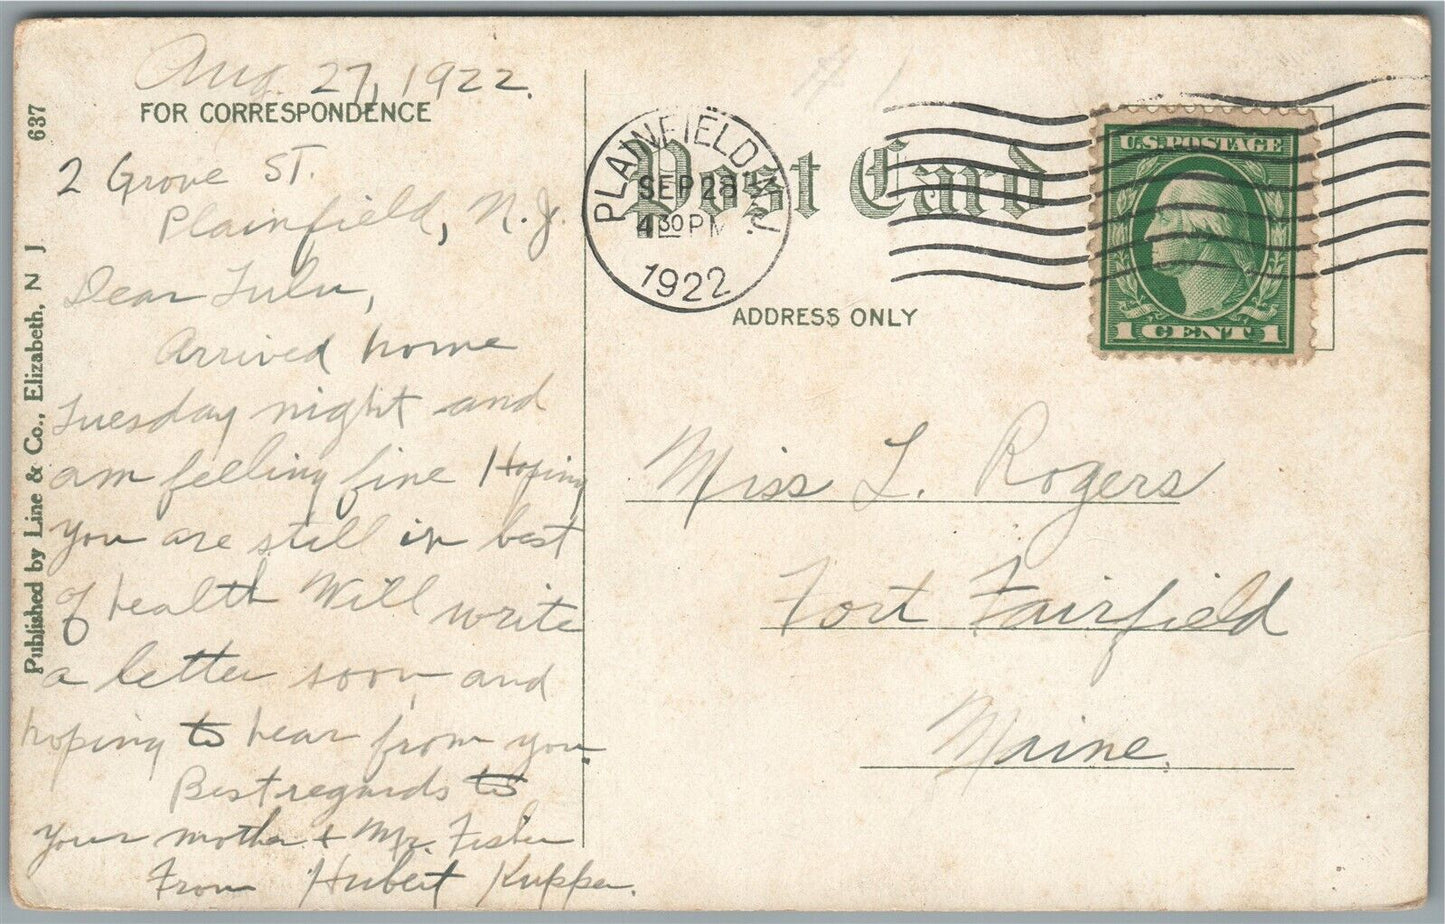 Aug. 27, 1922.
FOR CORRESPONDENCE
2 Grove ST.
Plainfield, N.J.
Dear Lulu,
Arrived home
Tuesday night and
am feeling fine Hoping
you are still in best
of health Will write
a letter soon, and
hoping to hear from you.
Best regards to
your mother + Mr. Fisher
From Hubert Kupper.
Published by Line & Co., Elizabeth, N J 637
PLAINFIELD N.J.
SEP 28
4 30 PM
1922
Post Card
ADDRESS ONLY
U.S. POSTAGE
1 CENT 1
Miss L. Rogers
Fort Fairfield
Maine.